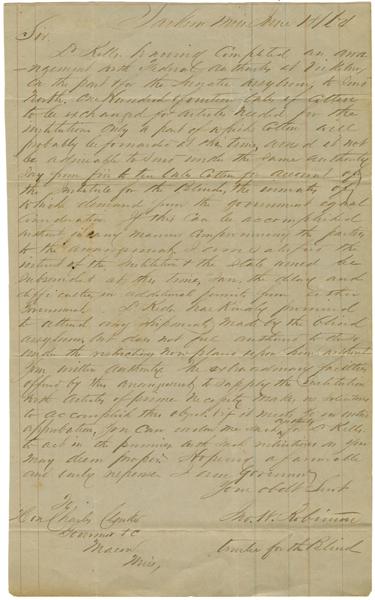 Jackson Miss June 18/64
Sir
Dr Kells having Completed an arra-
ngement with Federal Authority at Vicksburg
on the part for the Lunatic Asylum, to send
North, One Hundred
to be exchanged for articles needed for the
Institution Only a part of which Cotton will
probably be forwarded at this time, would it not
be advisable to send under the same authority
Say from five to ten bales Cotton for account of
the Institute for the Blind, the inmates of
which demand from the government equal
consideration. If this can be accomplished
without in any manner compromising the parties
to the arrangement, I am satisfied the
interest of the Institution & the State would be
subserved at this time, save the delay and
difficulties in additional permits from either
Government. Dr Kells has kindly promised
to attend any shipment, made by the blind
Asylum, but does not feel authorized to do so
under the restrictions now placed upon him without
your written authority the extraordinary facilities
offered by this arrangement to supply the Institution
with articles of prime necessity make me solicitous
to accomplish this object, & if it meets your
approbation, You can enclose me authority or Dr Kells,
to act in the premises with such instructions as you
may deem proper. Hoping a favorable
and early response I am Governor
Your obdt Servt
Jno. W. Robinson
Trustee for the Blind
To
Hon Charles Clarke
Governor &C
Macon
Miss,